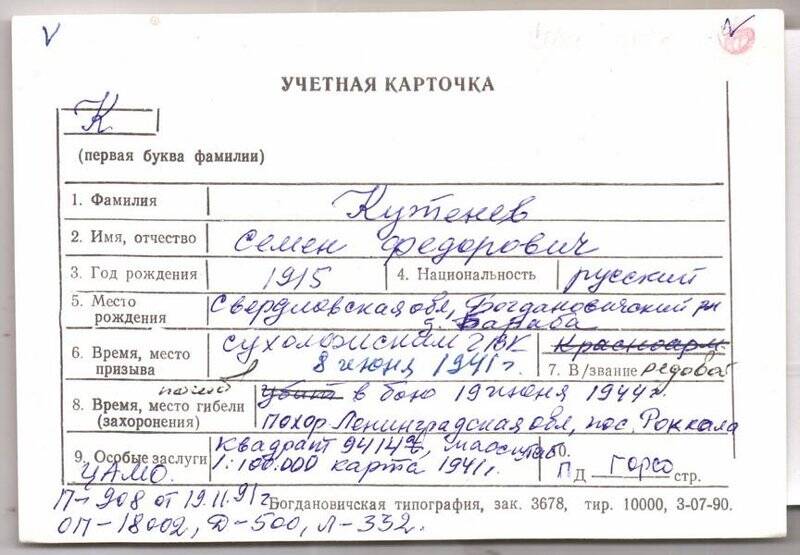 УЧЕТНАЯ КАРТОЧКА
К
(первая буква фамилии)
1. Фамилия Кутенев
2. Имя, отчество Семен Федорович
3. Год рождения 1915 4. Национальность русский
5. Место рождения Свердловская обл, Богдановичский рн
д. Бараба
6. Время, место призыва Сухоложским ГВК Красноарм.
8 июня 1941 г. 7. В/звание рядовой
погиб
8. Время, место гибели Убит в бою 19 июня 1944 г.
(захоронения) похор. Ленинградская обл, пос. Роккала
9. Особые заслуги Квадрант 9414 масштаб 10.
1:100.000 карта 1941 г. ПД горсо стр.
ЦАМО.
П-908 от 19.11.91 г Богдановичская типография, зак. 3678, тир. 10000, 3-07-90.
ОП-18002, Д-500, Л-332.